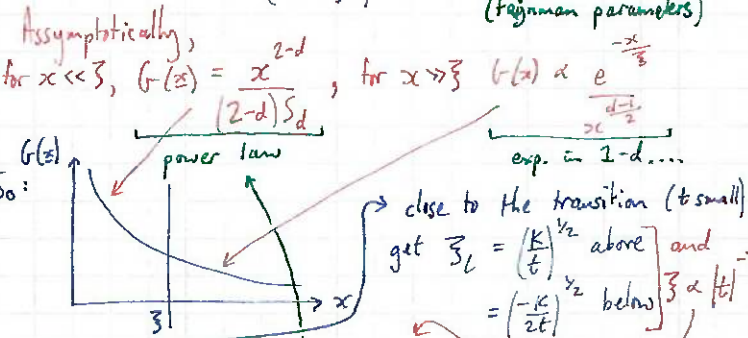 (Feynman parameters)
Assymptotically,
for x << ξ, G(x) = x^{2-d} / (2-d) S_d , for x >> ξ G(x) ∝ e^{-x/ξ} / x^{(d-1)/2}
power law
exp. in 1-d....
G(x)
So:
x
ξ
close to the transition (t small)
get ξ_l = (K/t)^{1/2} above
= (-K/2t)^{1/2} below
and
ξ ∝ |t|^-